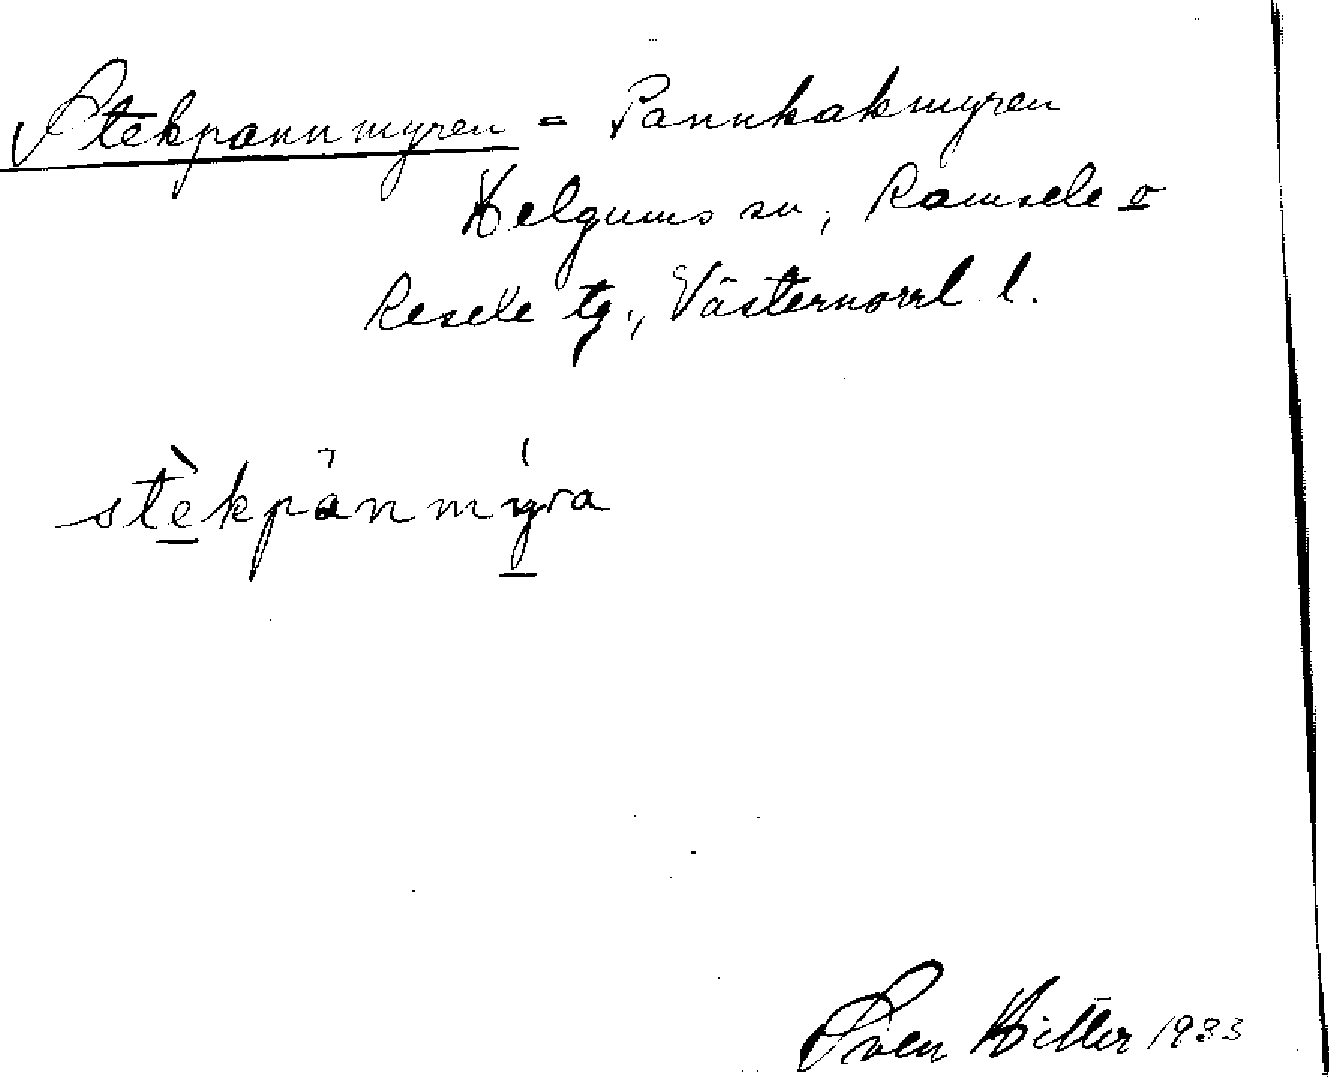 Stekpannmyren = Pannkakmyren
Helgums sn, Ramsele o
Resele tg., Västernorrl l.
stèkpànmýra
Sven Hitter 1933